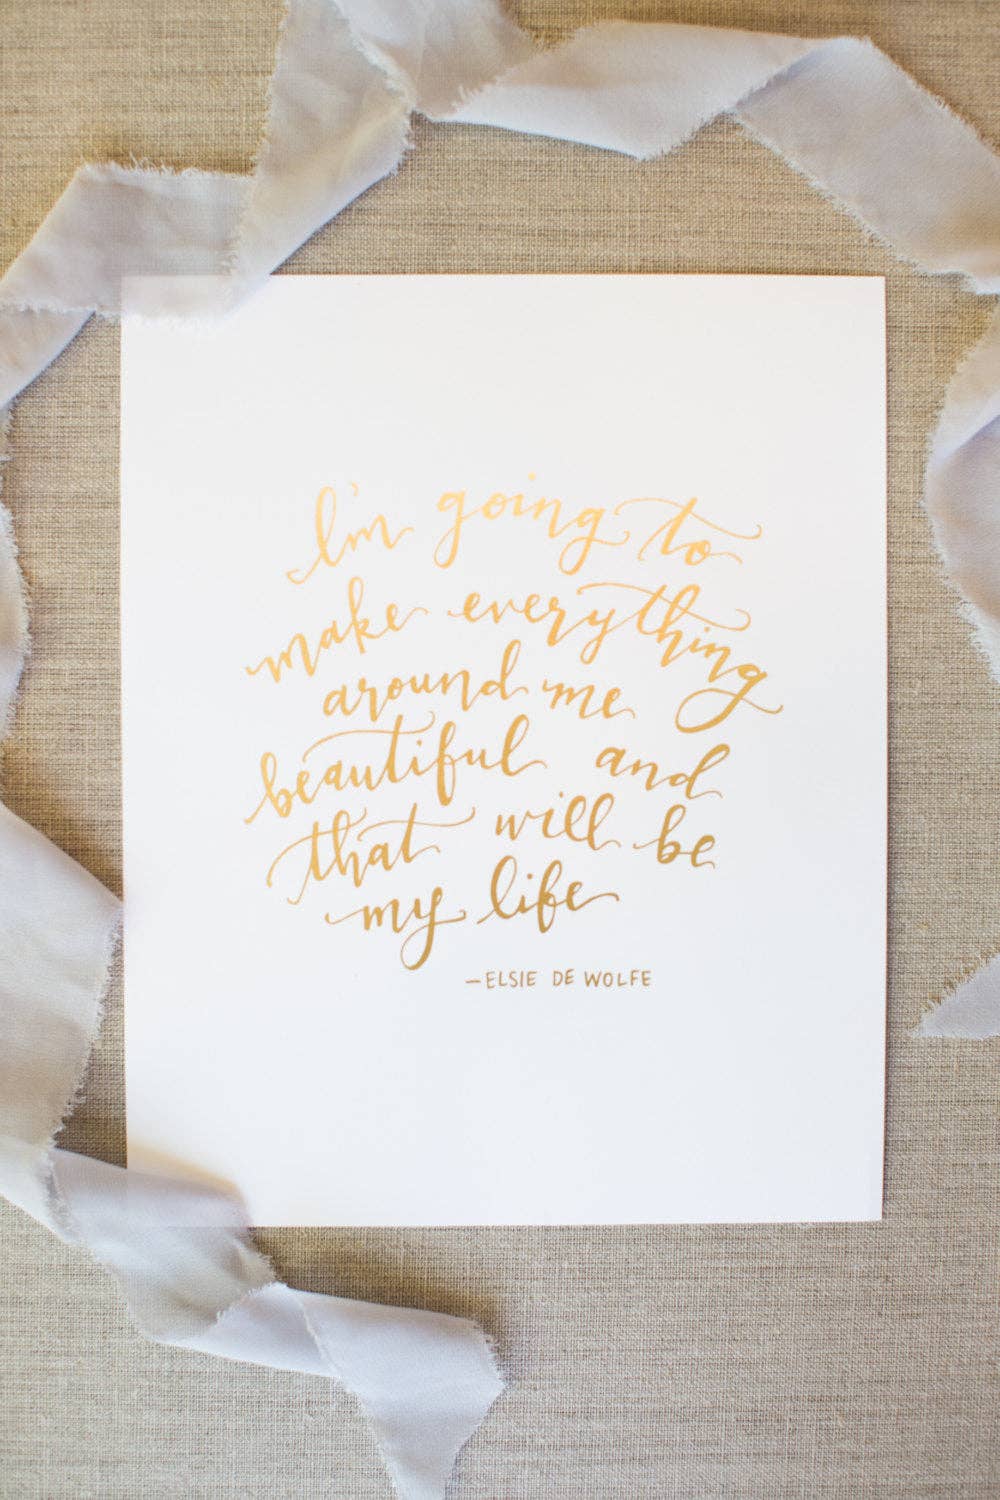 I'm going to
make everything
around me
beautiful and
that will be
my life
—ELSIE DE WOLFE